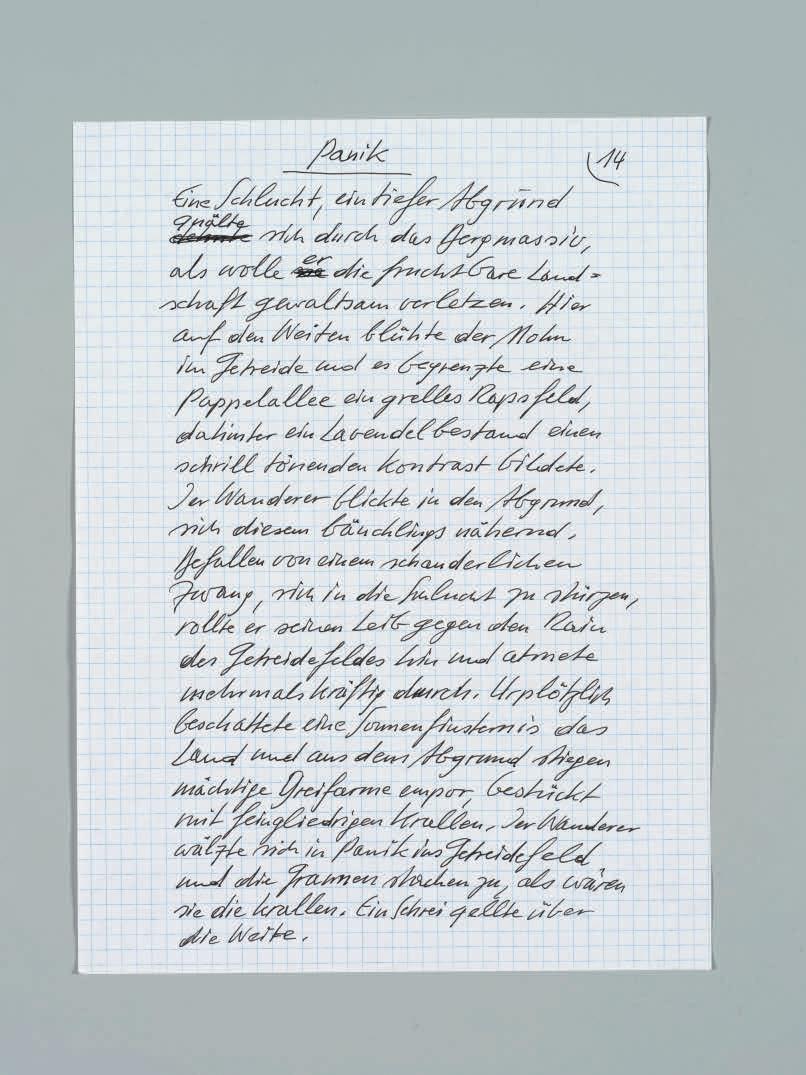 Panik
14
Eine Schlucht, ein tiefer Abgrund
quälte
dehnte sich durch das Bergmassiv,
er
als wolle sie die fruchtbare Land=
schaft gewaltsam verletzen. Hier
auf den Weiten blühte der Mohn
im Getreide und es begrenzte eine
Pappelallee ein grelles Rapsfeld,
dahinter ein Lavendelbestand einen
schrill tönenden Kontrast bildete.
Der Wanderer blickte in den Abgrund,
sich diesem bäuchlings nähernd.
Befallen von einem schauderlichen
Zwang, sich in die Schlucht zu stürzen,
rollte er seinen Leib gegen den Rain
des Getreidefeldes hin und atmete
mehrmals kräftig durch. Urplötzlich
beschattete eine Sonnenfinsternis das
Land und aus dem Abgrund stiegen
mächtige Greifarme empor, bestückt
mit feingliedrigen Krallen. Der Wanderer
wälzte sich in Panik ins Getreidefeld
und die Grannen stachen zu, als wären
sie die Krallen. Ein Schrei gellte über
die Weite.